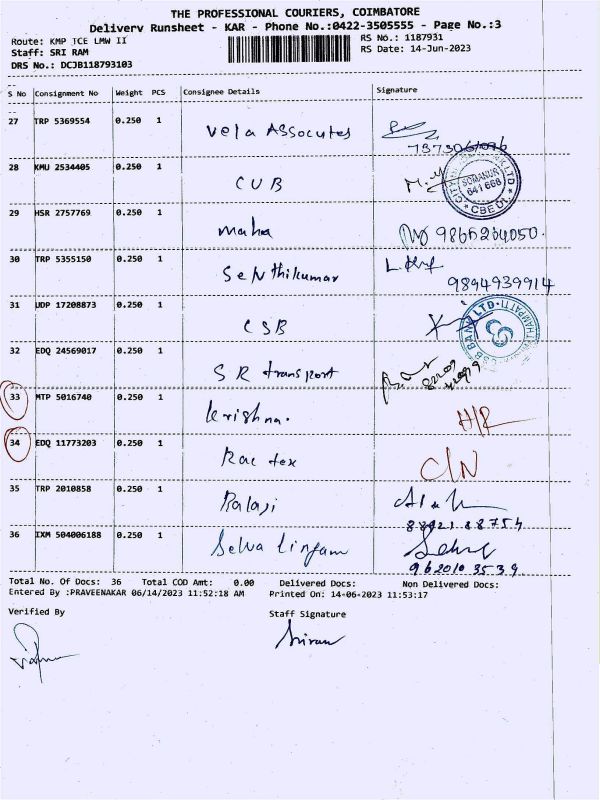 THE PROFESSIONAL COURIERS, COIMBATORE
Delivery Runsheet - KAR - Phone No.:0422-3505555 - Page No.:3
Route: KMP TCE LMW II
RS No.: 1187931
Staff: SRI RAM
RS Date: 14-Jun-2023
DRS No.: DCJB118793103
S No Consignment No Weight PCS Consignee Details Signature
27 TRP 5369554 0.250 1 Vela Assocutes
28 KMU 2534405 0.250 1 CUB
SOMANUR
641 668
CBE Dt.
29 HSR 2757769 0.250 1 Maha 9866204050
30 TRP 5355150 0.250 1 Senthikumar
9894939914
31 UDP 17208873 0.250 1 CSB
CSB BANK LTD
32 EDQ 24569017 0.250 1 SR transport
33 MTP 5016740 0.250 1 krishna. H/R
34 EDQ 11773203 0.250 1 Rae tex C/N
35 TRP 2010858 0.250 1 Balaji
88921 88754
36 IXM 504006188 0.250 1 Selva lingam
962010 3539
Total No. Of Docs: 36 Total COD Amt: 0.00 Delivered Docs: Non Delivered Docs:
Entered By :PRAVEENAKAR 06/14/2023 11:52:18 AM Printed On: 14-06-2023 11:53:17
Verified By Staff Signature
Sriram